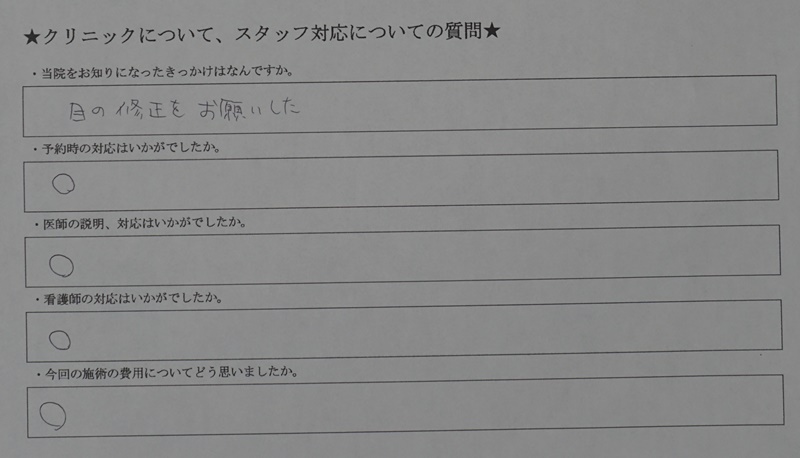 ★クリニックについて、スタッフ対応についての質問★
・当院をお知りになったきっかけはなんですか。
目の修正をお願いした
・予約時の対応はいかがでしたか。
○
・医師の説明、対応はいかがでしたか。
○
・看護師の対応はいかがでしたか。
○
・今回の施術の費用についてどう思いましたか。
○